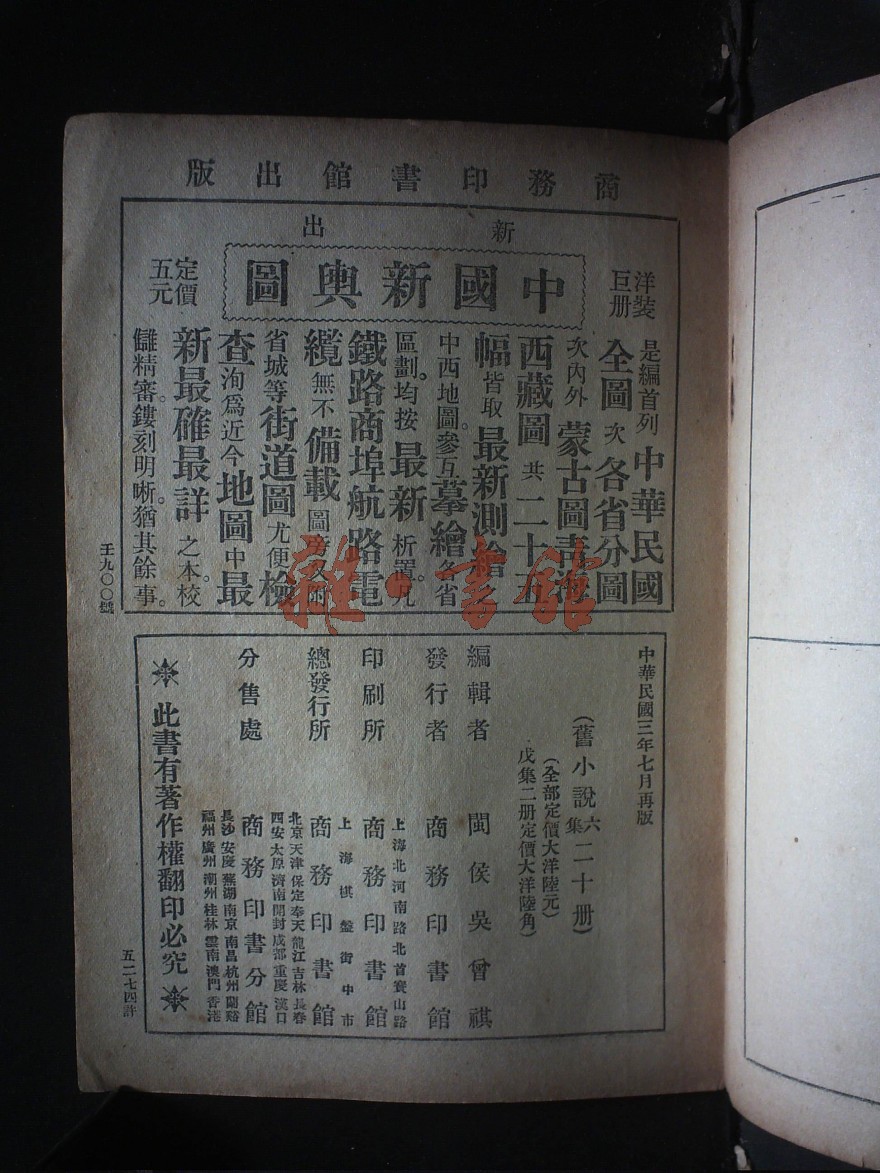 商務印書館出版
新出
洋裝巨册
中國新輿圖
定價五元
是編首列中華民國
全圖次各省分圖
次內外蒙古圖青海
西藏圖共二十五
幅皆取最新測繪之
中西地圖。參互摹繪各省
區劃。均按最新析置。凡
鐵路商埠航路電
纜無不備載圖旁又附
省城等街道圖尤便檢
查洵爲近今地圖中最
新最確最詳之本。校
讎精審。鏤刻明晰。猶其餘事。
壬九〇〇號
中華民國三年七月再版
(舊小說六集二十册)
(全部定價大洋陸元)
戊集二册定價大洋陸角)
編輯者 閩侯吳曾祺
發行者 商務印書館
上海北河南路北首寶山路
印刷所 商務印書館
上海棋盤街中市
總發行所 商務印書館
北京天津保定奉天龍江吉林長春
西安太原濟南開封成都重慶漢口
分售處 商務印書分館
長沙安慶蕪湖南京南昌杭州蘭谿
福州廣州潮州桂林雲南澳門香港
此書有著作權翻印必究
五二七四許
雜·書館